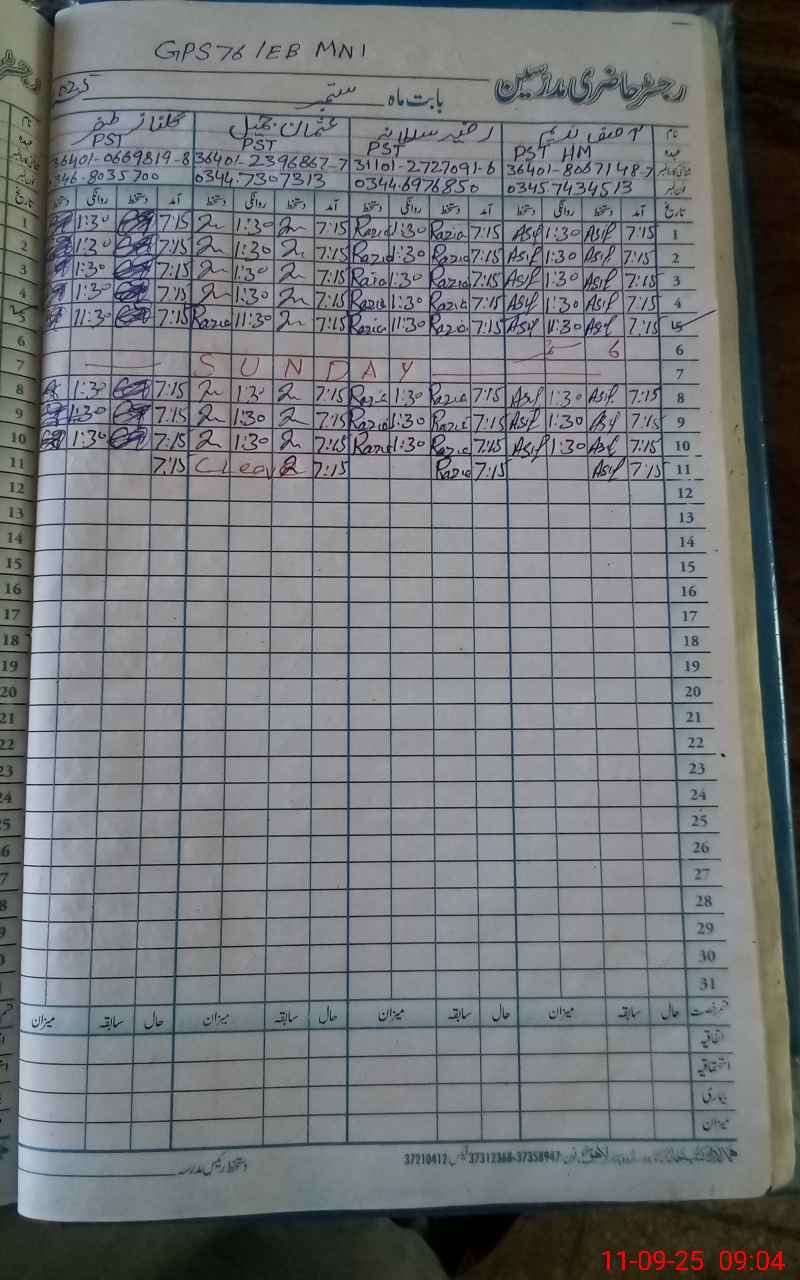 GPS 76 /EB MNI
رجسٹر حاضری مدرسین
بابت ماہ ستمبر
نام آصف ندیم رضیہ سلطانہ عثمان جمیل گلناز
عہدہ PST HM PST PST PST
36401-8067148-7 31101-2727091-6 36401-2396867-7 36401-0669819-8
0345.7434513 0344.6976850 0344.7307313 0346-8035700
تاریخ آمد دستخط روانگی دستخط آمد دستخط روانگی دستخط آمد دستخط روانگی دستخط آمد دستخط روانگی دستخط
1 7:15 Asif 1:30 Asif 7:15 Razia 1:30 Razia 7:15 1:30 7:15 1:30
2 7:15 Asif 1:30 Asif 7:15 Razia 1:30 Razia 7:15 1:30 7:15 1:30
3 7:15 Asif 1:30 Asif 7:15 Razia 1:30 Razia 7:15 1:30 7:15 1:30
4 7:15 Asif 1:30 Asif 7:15 Razia 1:30 Razia 7:15 1:30 7:15 1:30
5 7:15 Asif 11:30 Asif 7:15 Razia 11:30 Razia 7:15 11:30 Razia 7:15 11:30
6 6
7 SUNDAY
8 7:15 Asif 1:30 Asif 7:15 Razia 1:30 Razia 7:15 1:30 7:15 1:30
9 7:15 Asif 1:30 Asif 7:15 Razia 1:30 Razia 7:15 1:30 7:15 1:30
10 7:15 Asif 1:30 Asif 7:15 Razia 1:30 Razia 7:15 1:30 7:15 1:30
11 7:15 Asif 7:15 Razia 7:15 7:15
12
13
14
15
16
17
18
19
20
21
22
23
24
25
26
27
28
29
30
31
حال سابقہ میزان حال سابقہ میزان حال سابقہ میزان حال سابقہ میزان
اتفاقیہ
استحقاقیہ
بیماری
میزان
دستخط رئیس مدرسہ
37210412 فیکس 37312368-37358947
11-09-25 09:04